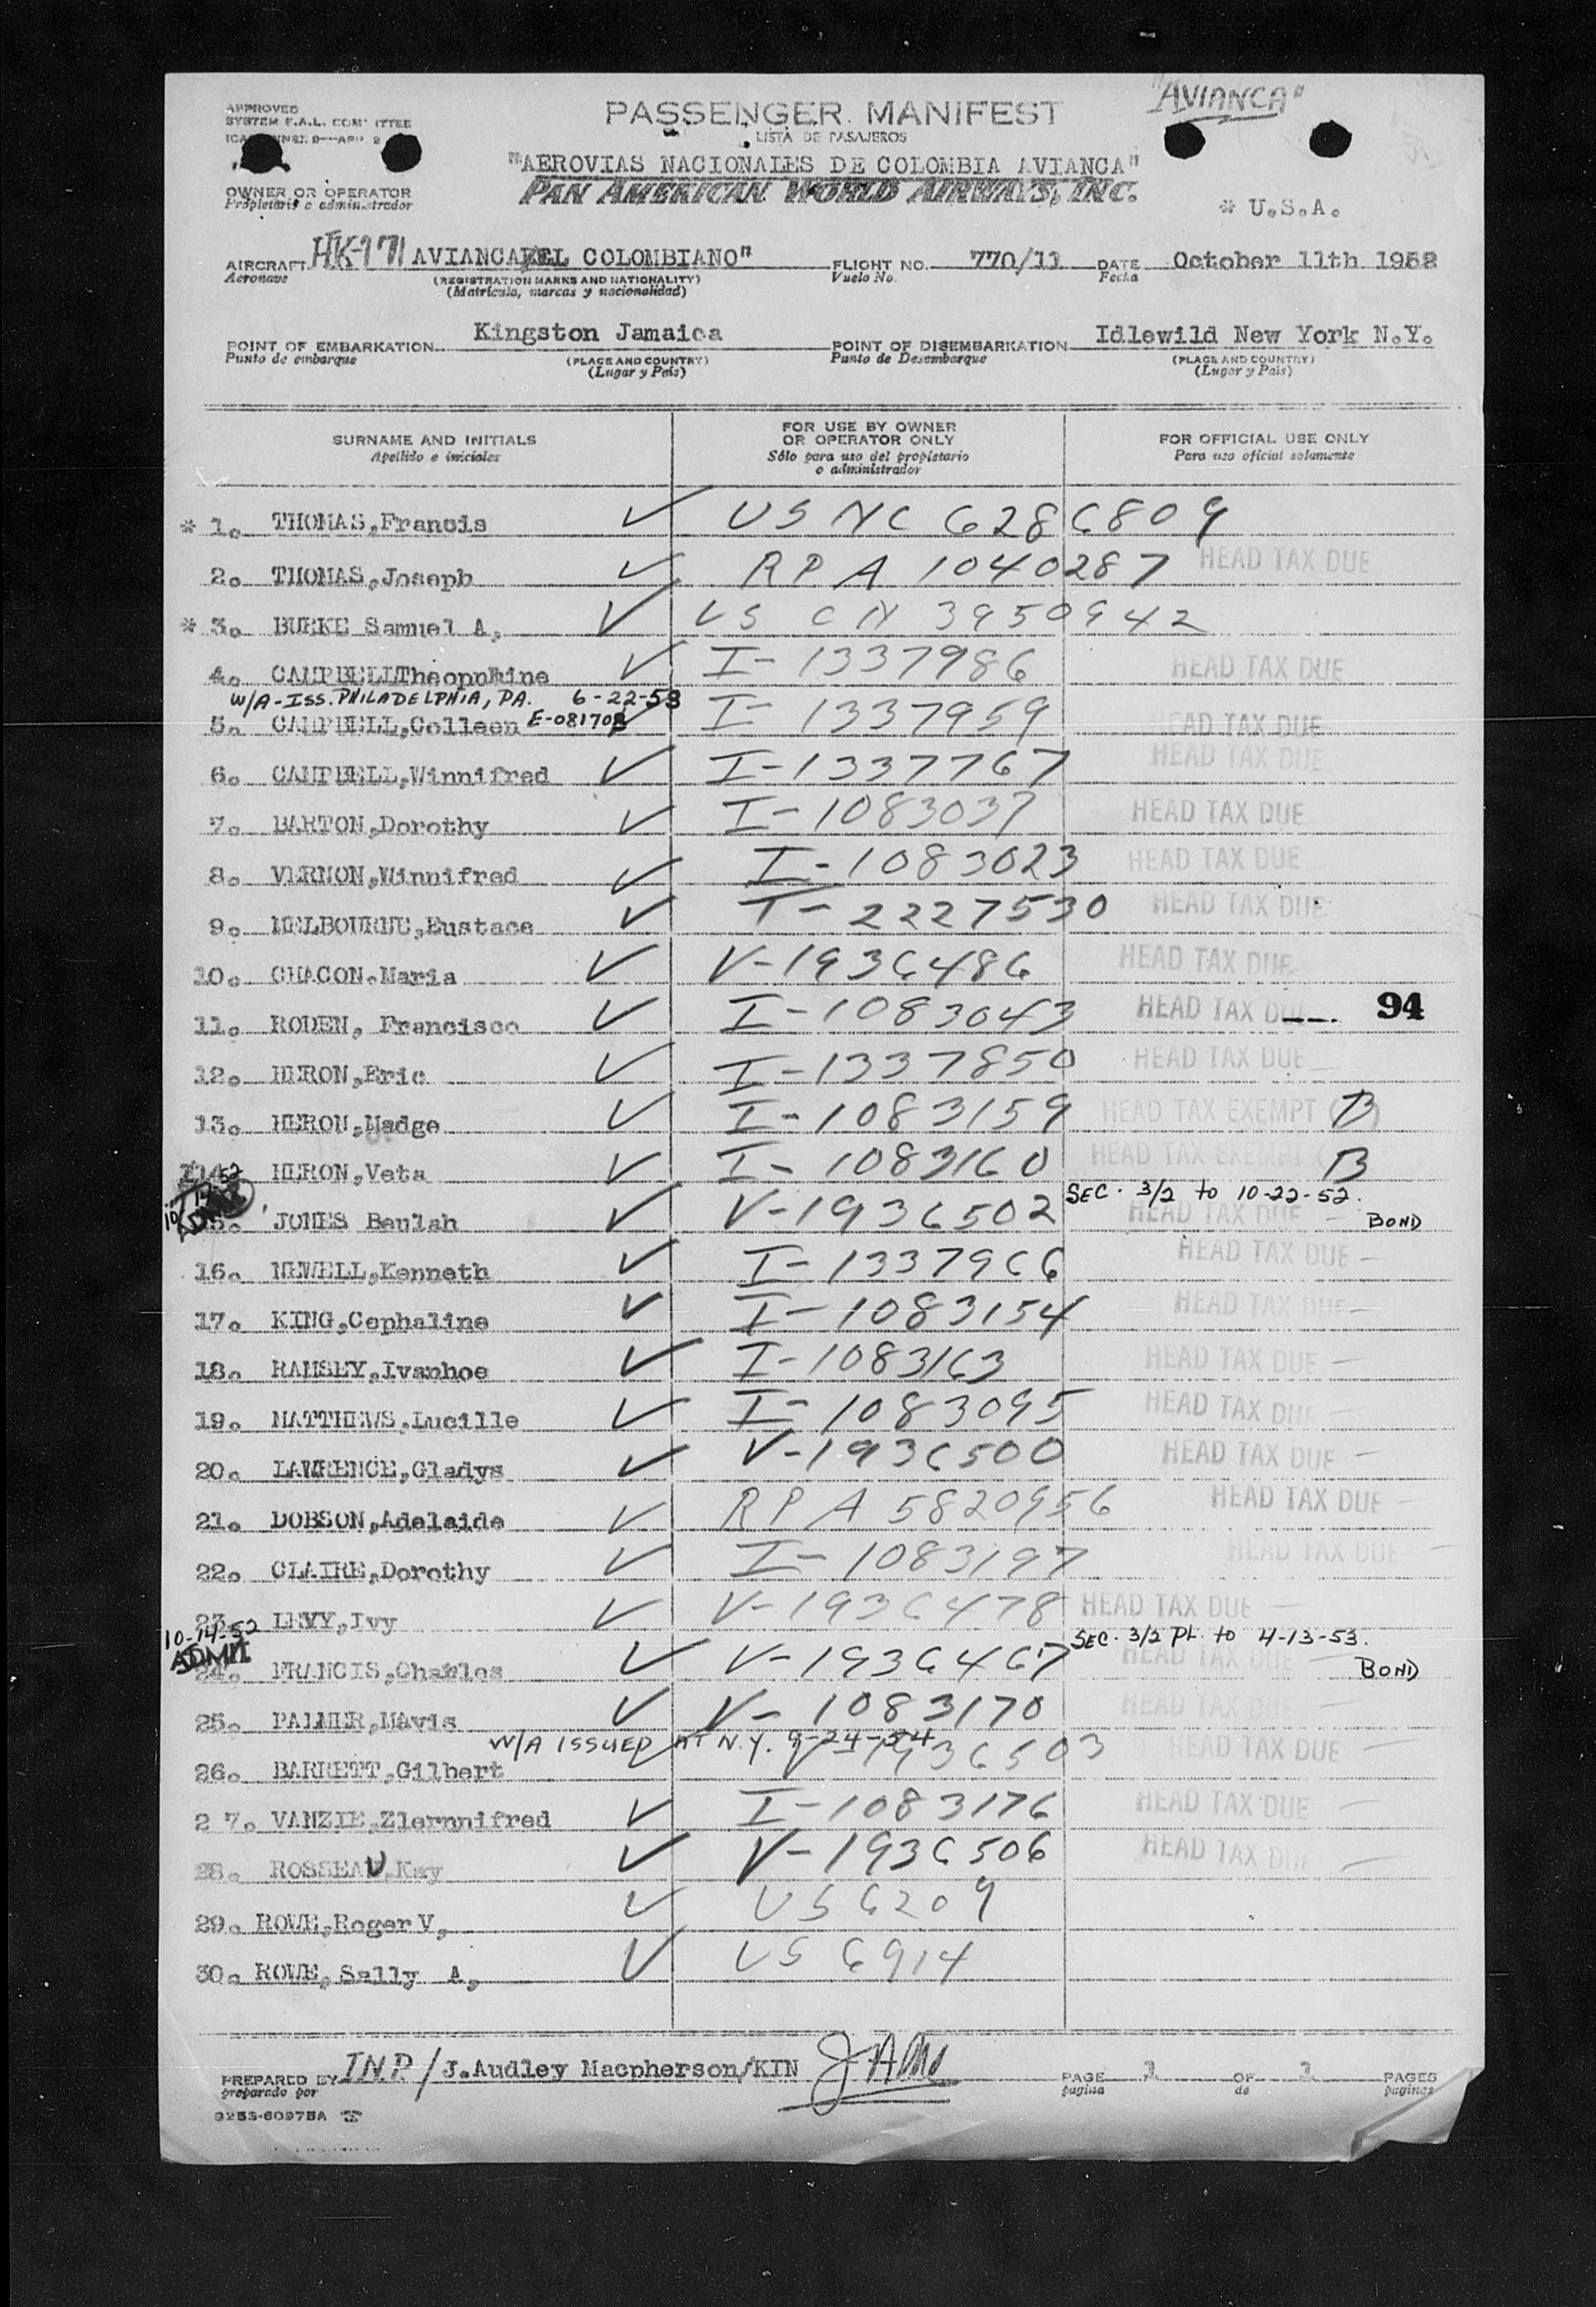 "AVIANCA"
APPROVED
SYSTEM F.A.L. COM
PASSENGER MANIFEST
LISTA DE PASAJEROS
"AEROVIAS NACIONALES DE COLOMBIA AVIANCA"
OWNER OR OPERATOR
PAN AMERICAN WORLD AIRWAYS, INC.
Propietario o administrador
* U.S.A.
AIRCRAFT HK-171 AVIANCA EL COLOMBIANO" FLIGHT NO. 770/11 DATE October 11th 1952
Aeronave (REGISTRATION MARKS AND NATIONALITY) Vuelo No. Fecha
(Matrícula, marcas y nacionalidad)
POINT OF EMBARKATION Kingston Jamaica POINT OF DISEMBARKATION Idlewild New York N.Y.
Punto de embarque (PLACE AND COUNTRY) Punto de Desembarque (PLACE AND COUNTRY)
(Lugar y País) (Lugar y País)
SURNAME AND INITIALS FOR USE BY OWNER OR OPERATOR ONLY FOR OFFICIAL USE ONLY
Apellido e iniciales Sólo para uso del propietario o administrador Para uso oficial solamente
* 1. THOMAS,Francis ✓ US NC 6286809
2. THOMAS,Joseph ✓ RPA 1040287 HEAD TAX DUE
* 3. BURKE Samuel A, ✓ US CN 3950942
4. CAMPBELL ✓ I-1337986 HEAD TAX DUE
W/A-ISS. PHILADELPHIA, PA. 6-22-53
5. CAMPBELL,Colleen ✓ I-1337959 HEAD TAX DUE
6. CAMPBELL,Winnifred ✓ I-1337767 HEAD TAX DUE
7. BARTON,Dorothy ✓ I-1083037 HEAD TAX DUE
8. VERNON,Winnifred ✓ I-1083023 HEAD TAX DUE
9. MELBOURNE,Eustace ✓ T-2227530 HEAD TAX DUE
10. CHACON.Maria ✓ V-1936486 HEAD TAX DUE
11. RODEN, Francisco ✓ I-1083043 HEAD TAX DUE 94
12. HERON,Eric ✓ I-1337850 HEAD TAX DUE
13. HERON,Madge ✓ I-1083159 HEAD TAX EXEMPT (B)
14. HERON,Veta ✓ I-1083160 HEAD TAX EXEMPT ( B
SEC. 3/2 to 10-22-52.
15. JONES Beulah ✓ V-1936502 HEAD TAX DUE BOND
16. NEWELL,Kenneth ✓ I-1337966 HEAD TAX DUE
17. KING,Cephaline ✓ I-1083154 HEAD TAX DUE
18. RAMSEY,Ivanhoe ✓ I-1083163 HEAD TAX DUE
19. MATTHEWS,Lucille ✓ I-1083095 HEAD TAX DUE
20. LAWRENCE,Gladys ✓ V-1936500 HEAD TAX DUE
21. DOBSON,Adelaide ✓ RPA 5820956 HEAD TAX DUE
22. CLAIRE,Dorothy ✓ I-1083197 HEAD TAX DUE
23. LEVY,Ivy ✓ V-1936478 HEAD TAX DUE
10-14-52 SEC. 3/2 PL. to 4-13-53.
ADMIT
24. FRANCIS,Charles ✓ V-1936467 HEAD TAX DUE BOND
25. PALMER,Mavis ✓ V-1083170 HEAD TAX DUE
W/A ISSUED AT N.Y. 9-24-54
26. BARRETT,Gilbert ✓ V-1936503 HEAD TAX DUE
27. VANZIE,Zlernnifred ✓ I-1083176 HEAD TAX DUE
28. ROSSEAU,Kay ✓ V-1936506 HEAD TAX DUE
29. ROWE,Roger V, ✓ US 6209
30. ROWE, Sally A, ✓ US 6914
PREPARED BY INP/J.Audley Macpherson/KIN PAGE 1 OF 1 PAGES
preparado por pagina de paginas
9253-60975A